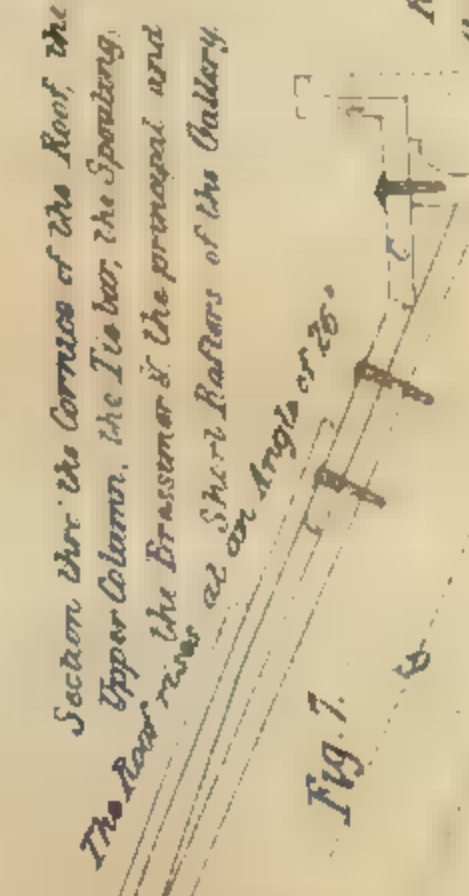 Section thro' the Cornice of the Roof, the
Upper Column, the Tie bar, the Spouting,
the Brassumer & the principal and
Short Rafters of the Gallery.
The Roof rises at an Angle of 26°
Fig. 7.